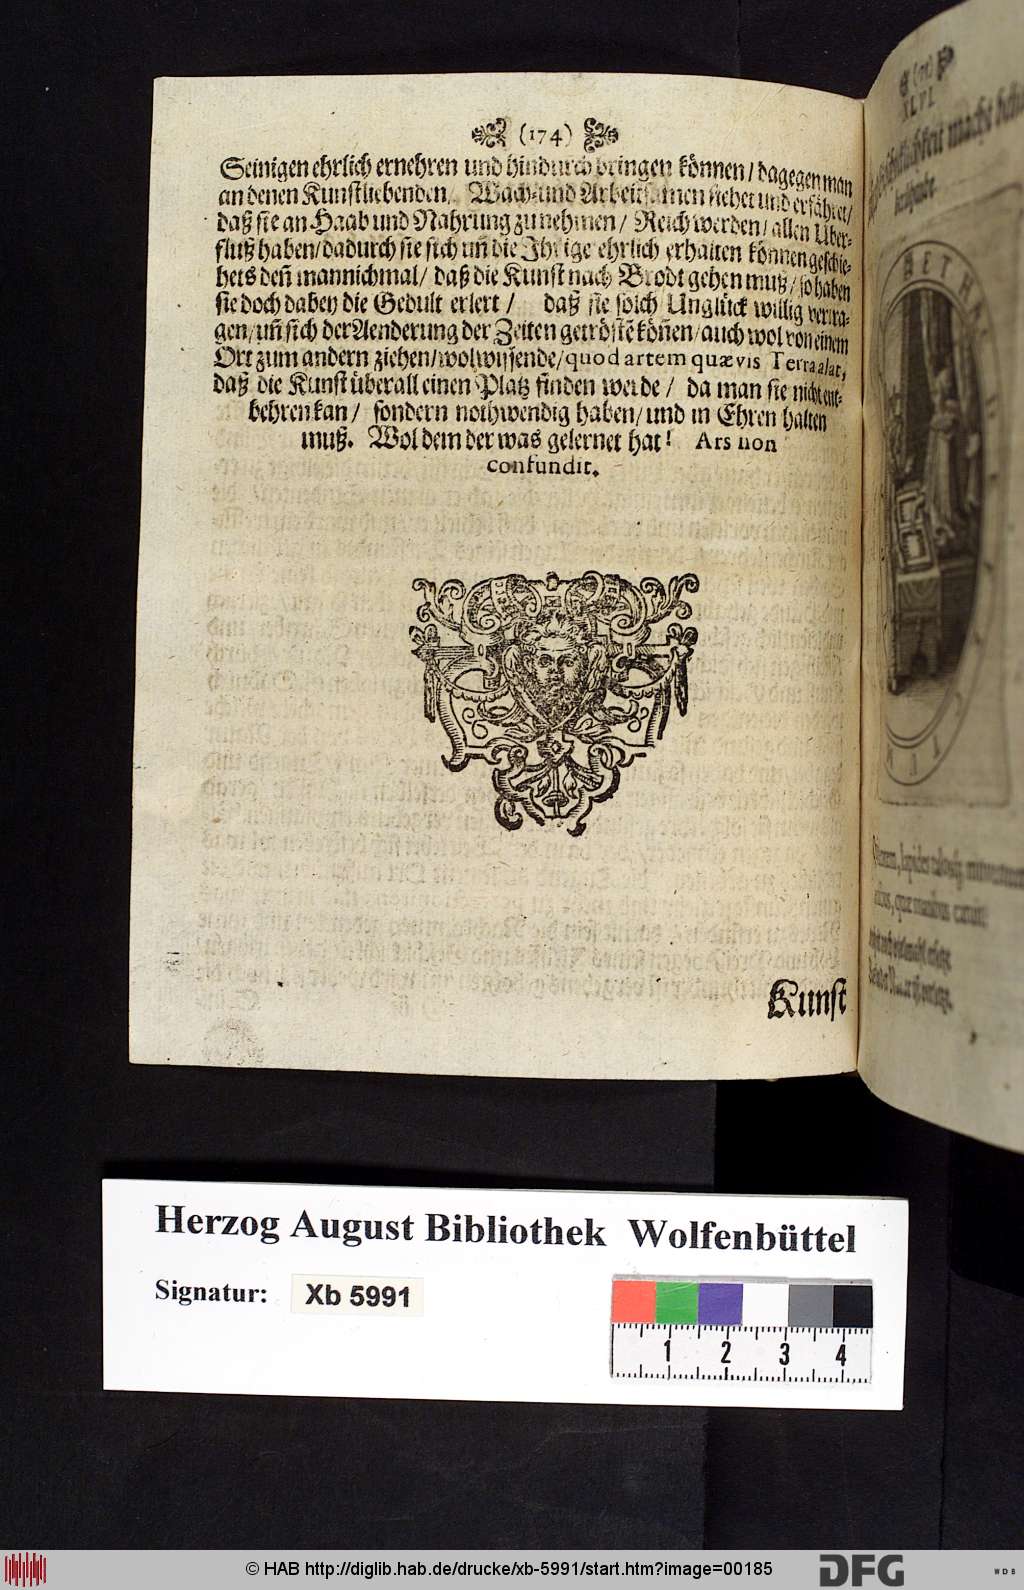 (174)
Seinigen ehrlich ernehren und hindurch bringen können / dagegen man
an denen Kunstliebenden / Wach- und Arbeitsamen siehet und erfähret /
daß sie an Haab und Nahrung zunehmen / Reich werden / allen Uber-
fluß haben / dadurch sie sich uñ die Ihrige ehrlich erhalten können geschie-
hets deñ mannichmal / daß die Kunst nach Brodt gehen muß / so haben
sie doch dabey die Gedult erlert / daß sie solch Unglück willig vertra-
gen / uñ sich der Aenderung der Zeiten getröstē köñen / auch wol von einem
Ort zum andern ziehen / wolwissende / quod artem quævis Terra alat,
daß die Kunst überall einen Platz finden werde / da man sie nicht ent-
behren kan / sondern nothwendig haben / und in Ehren halten
muß. Wol dem der was gelernet hat! Ars non
confundit.
Kunst
XLVI.
macht
Herzog August Bibliothek Wolfenbüttel
Signatur: Xb 5991
1 2 3 4
© HAB http://diglib.hab.de/drucke/xb-5991/start.htm?image=00185
DFG
WDB